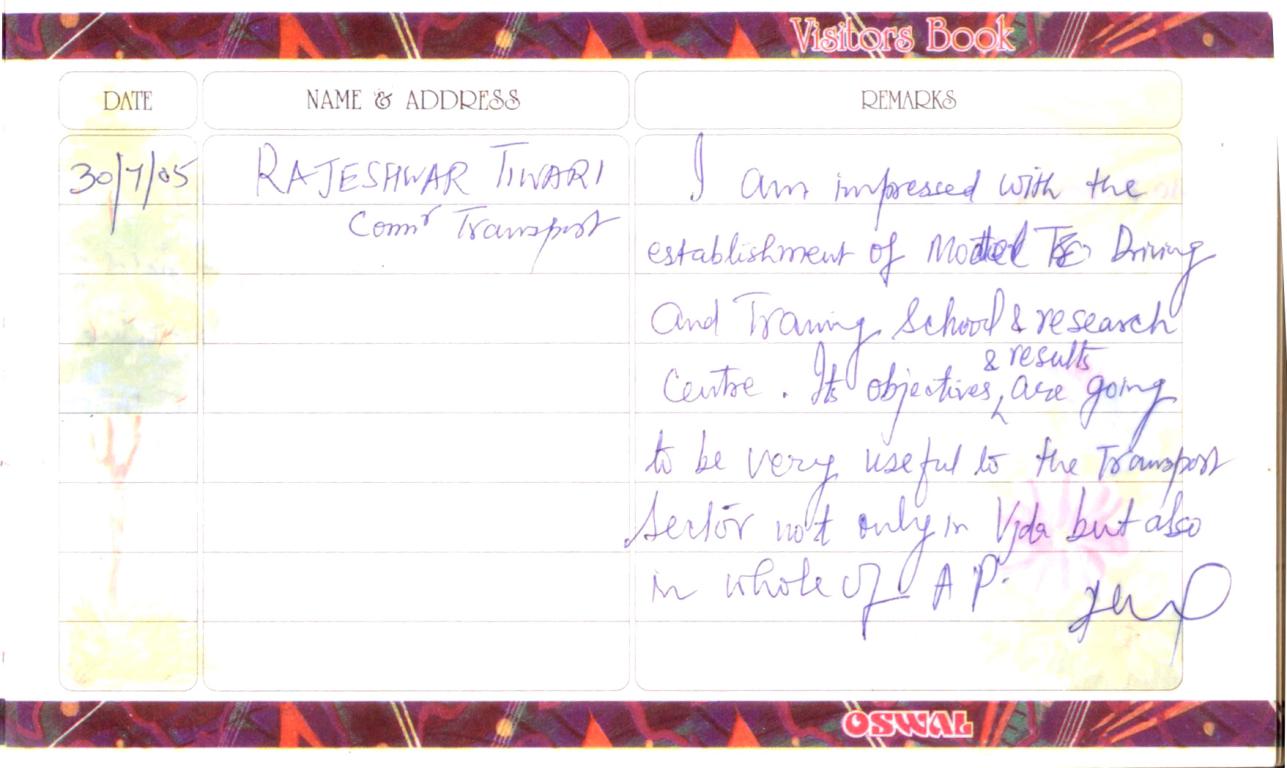 Visitors Book
DATE NAME & ADDRESS REMARKS
30/7/05 RAJESHWAR TIWARI I am impressed with the
Commr Transport
establishment of Model Driving
and Traning School & research
& results
Centre. Its objectives, are going
to be very useful to the Transport
Sector not only in Vjda but also
in whole of A P.
OSWAL